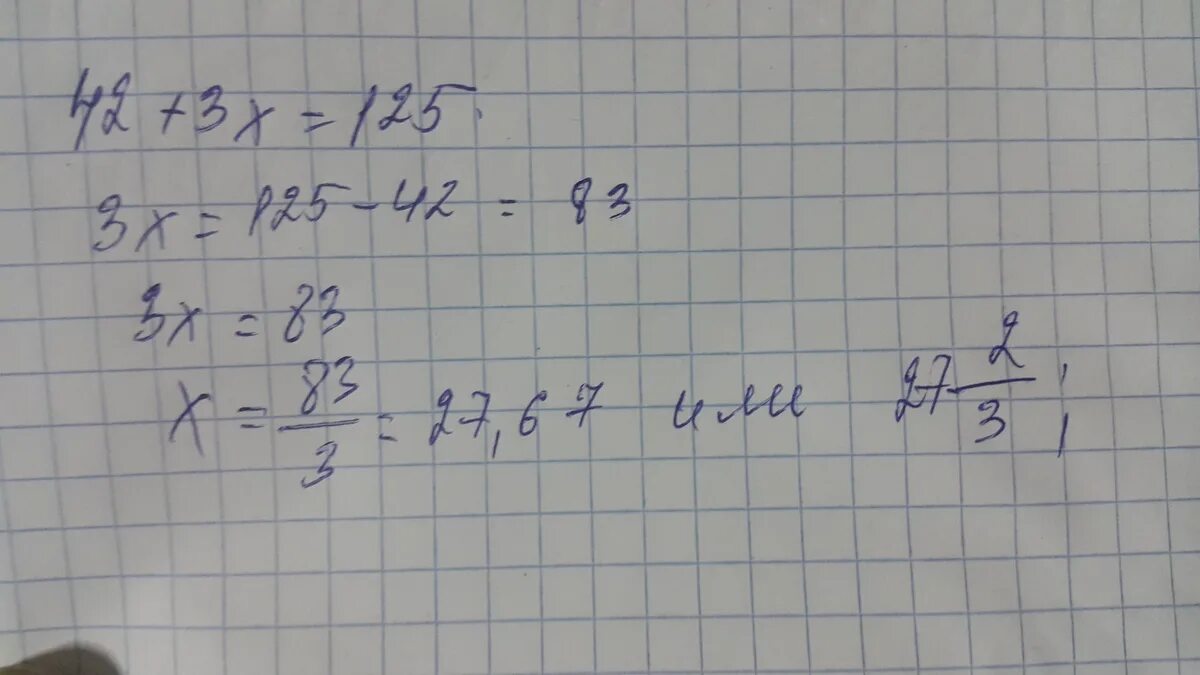 42 + 3x = 125.
3x = 125 - 42 = 83
3x = 83
x = 83/3 = 27,67 или 27 2/3;